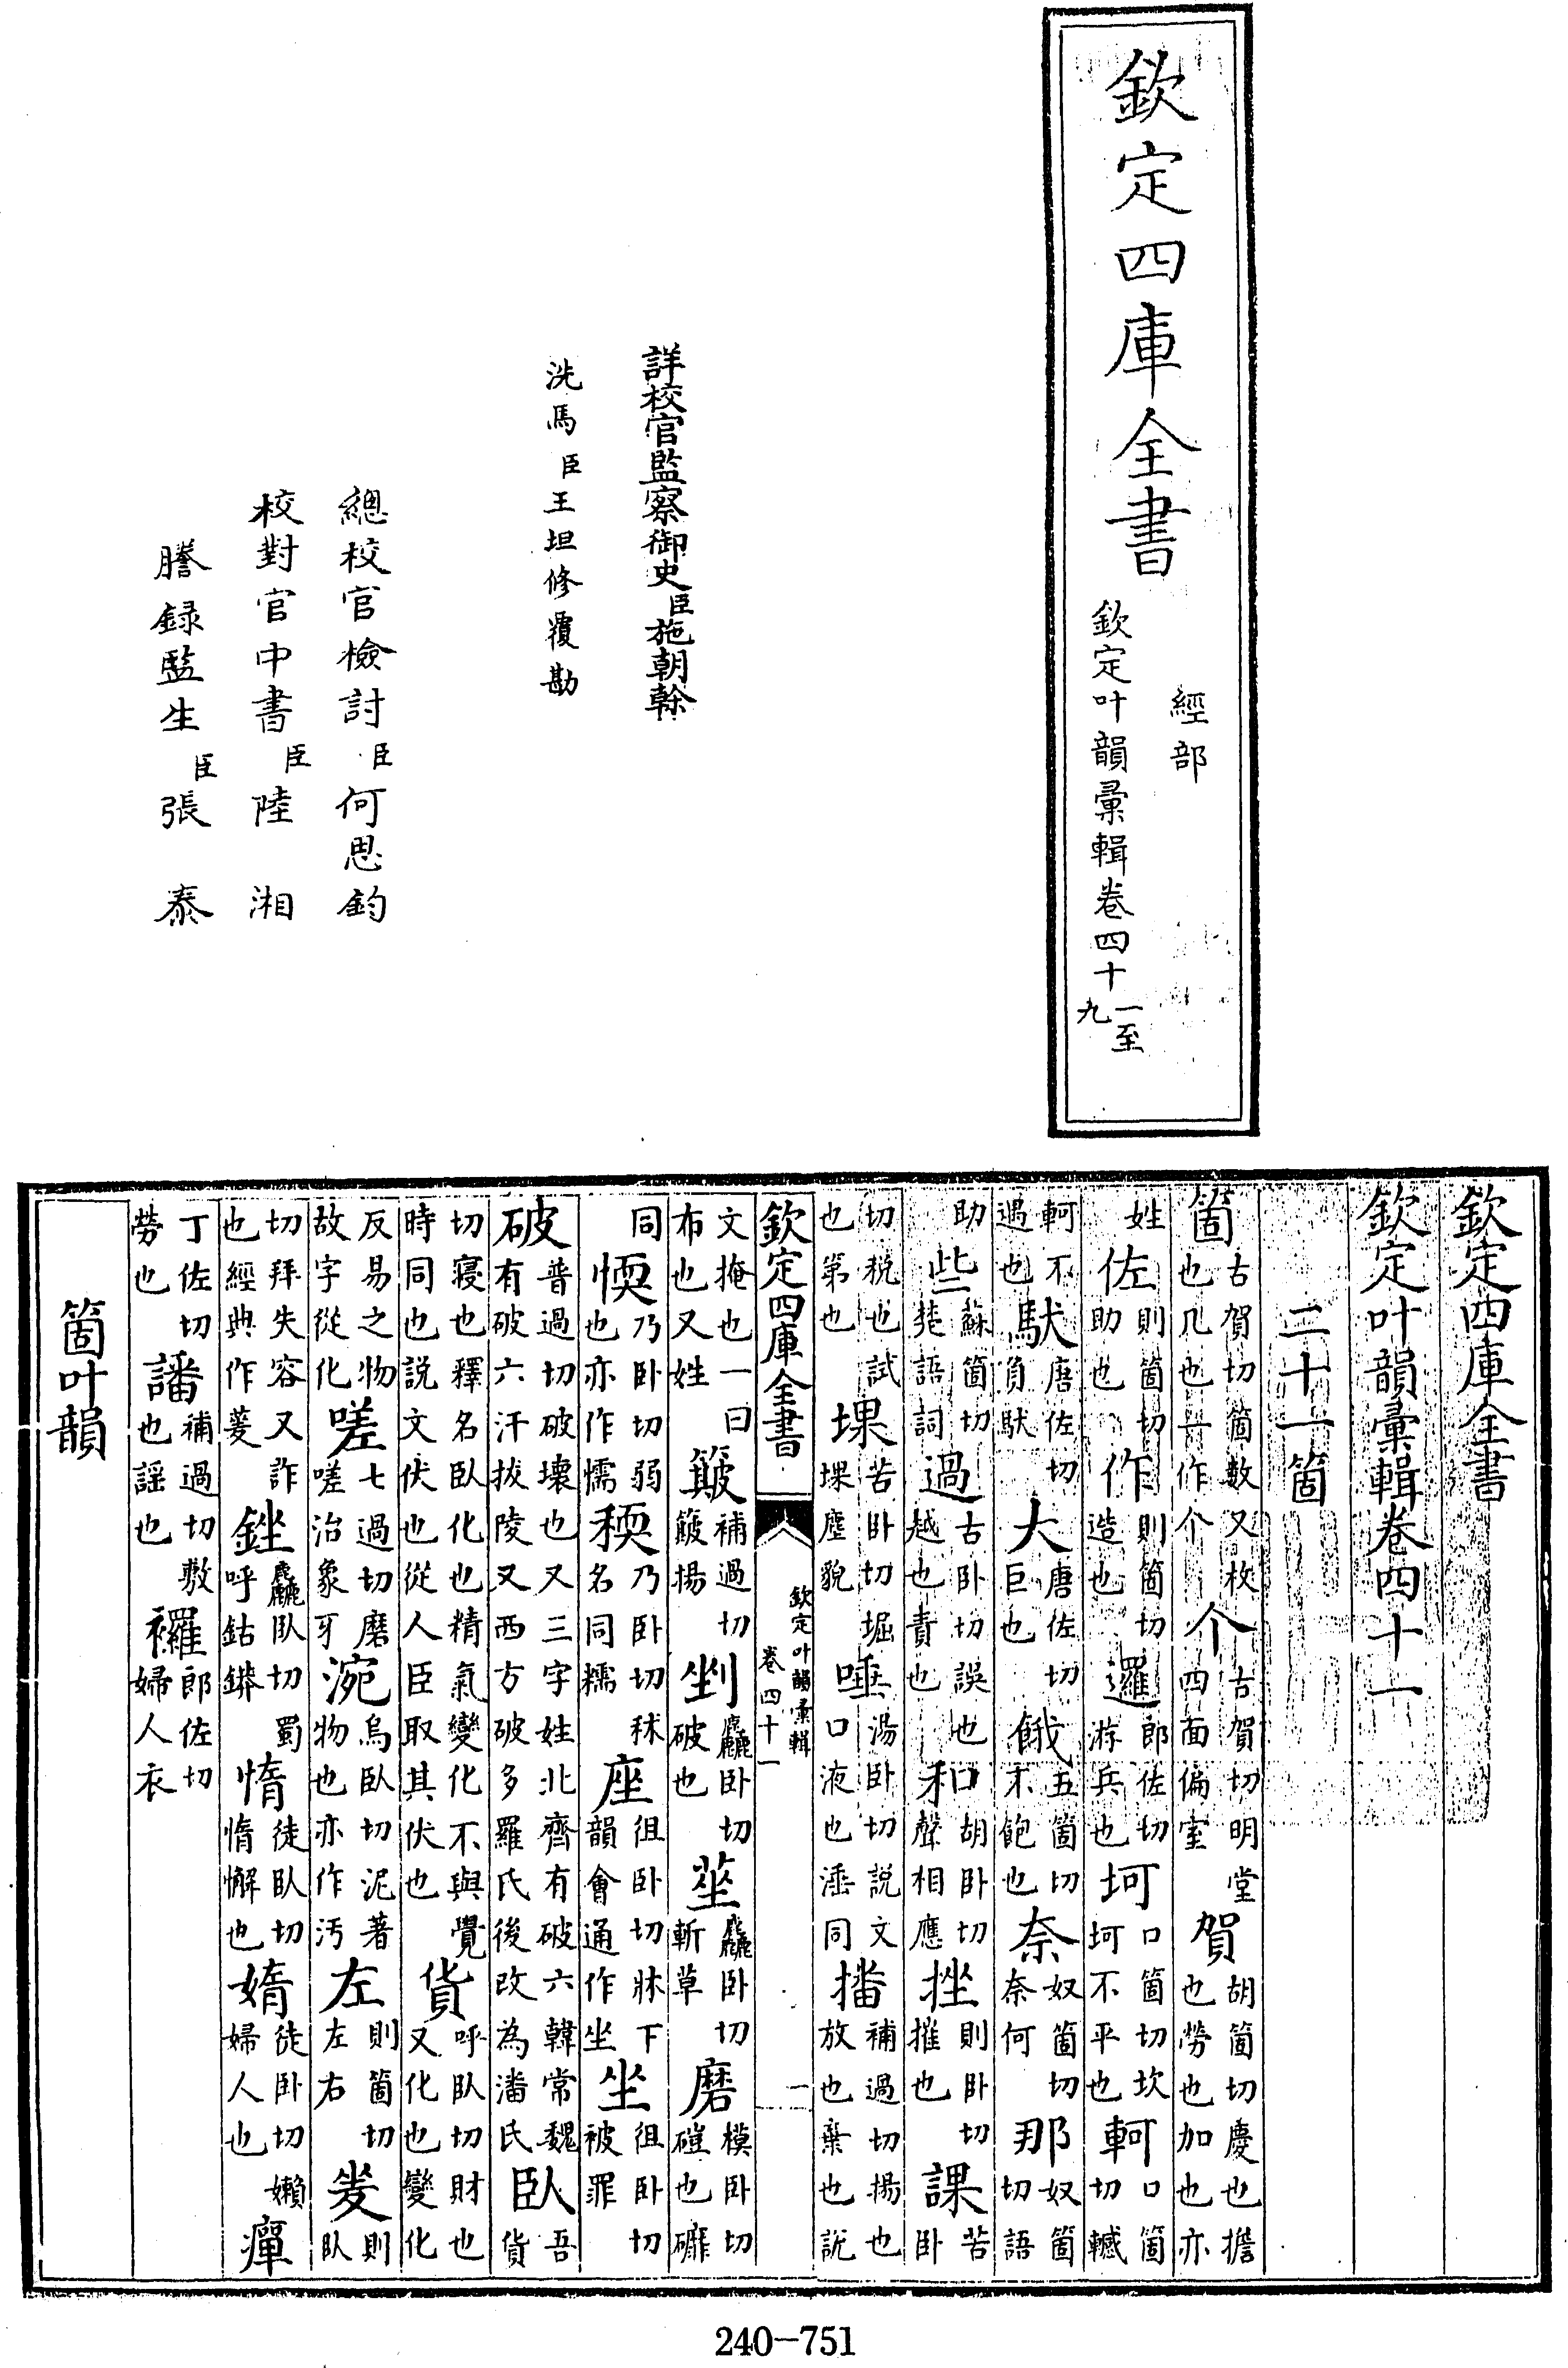 欽定四庫全書
經部
欽定叶韻彙輯卷四十一至九
詳校官監察御史臣施朝榦
洗馬臣王坦修覆勘
總校官檢討臣何思鈞
校對官中書臣陸湘
謄録監生臣張泰
欽定四庫全書
欽定叶韻彙輯卷四十一
二十一箇
箇古賀切箇數又枚也凡也亦作个个古賀切明堂四面偏室賀胡箇切慶也擔也勞也加也亦
姓佐則箇切助也作則箇切造也邏郎佐切游兵也坷口箇切坎坷不平也軻口箇切轗
軻不遇也馱唐佐切負馱大唐佐切巨也餓五箇切不飽也奈奴箇切奈何那奴箇切語
助些蘇箇切楚語詞過古卧切誤也越也責也和胡卧切聲相應挫則卧切摧也課苦卧
切税也試也第也堁苦卧切堀堁塵貌唾湯卧切説文口液也涶同播補過切揚也放也棄也説
文掩也一曰布也又姓簸補過切簸揚剉麤卧切破也莝麤卧切斬草磨模卧切磑也礳
同愞乃卧切弱也亦作懦稬乃卧切秫名同糯座徂卧切牀下韻會通作坐坐徂卧切被罪
破普過切破壞也又三字姓北齊有破六韓常魏有破六汗拔陵又西方破多羅氏後改為潘氏卧吾貨
切寢也釋名卧化也精氣變化不與覺時同也説文伏也從人臣取其伏也貨呼卧切財也又化也變化
反易之物故字從化嗟七過切磨嗟治象牙涴烏卧切泥著物也亦作汚左則箇切左右夎則卧
切拜失容又詐也經典作蓌銼麤卧切蜀呼鈷鏻惰徒卧切惰懈也媠徒卧切嬾婦人也癉
丁佐切勞也譒補過切敷也謡也䙨郎佐切婦人衣
箇叶韻
欽定四庫全書
欽定叶韻彙輯
卷四十一
一
240-751